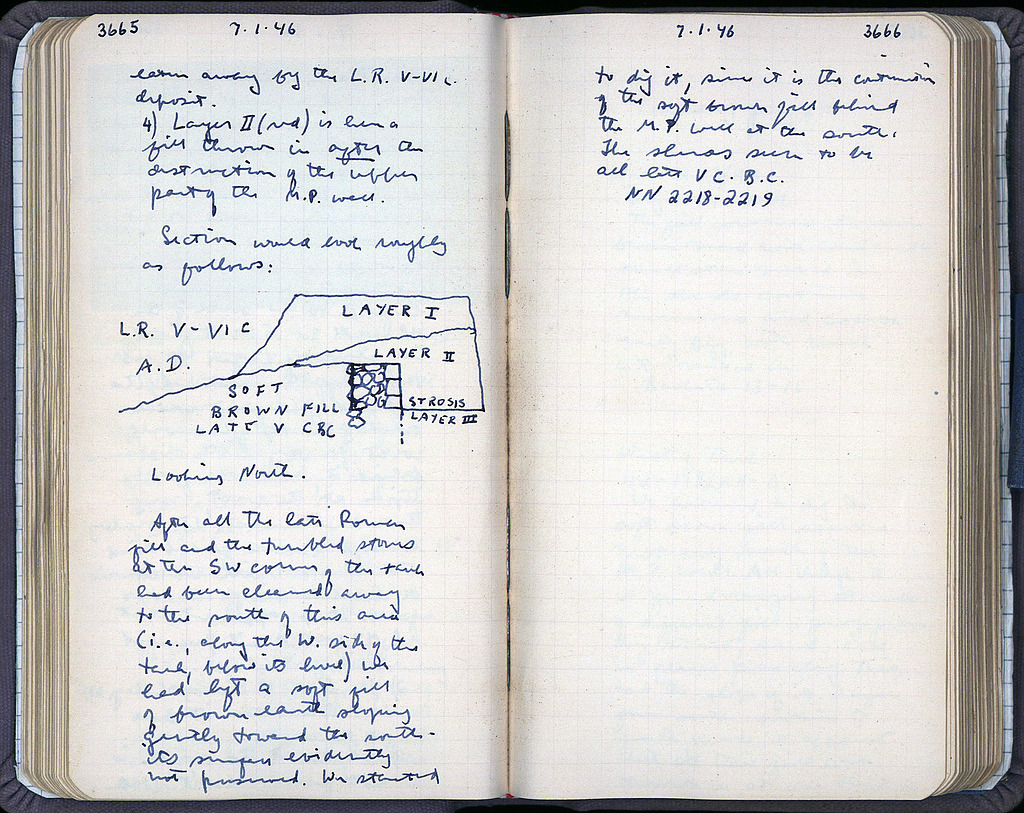 3665 7.1.46
eaten away by the L.R. V-VI c.
deposit.
4) Layer II (red) is here a
fill thrown in after the
destruction of the upper
part of the M.P. wall.
Section would look roughly
as follows:
LAYER I
L.R. V-VI C
A.D.
LAYER II
SOFT
BROWN FILL
LATE V CBC
STROSIS
LAYER III
Looking North.
After all the late Roman
fill and the tumbled stones
at the SW corner of the tank
had been cleaned away
to the south of this area
(i.e., along the W. side of the
tank, below its level) we
had left a soft fill
of brown earth sloping
gently toward the south-
its surface evidently
not preserved. We started
7.1.46 3666
to dig it, since it is the continuation
of the soft brown fill behind
the M.P. wall at the south.
The sherds seem to be
all late V C. B.C.
NN 2218-2219